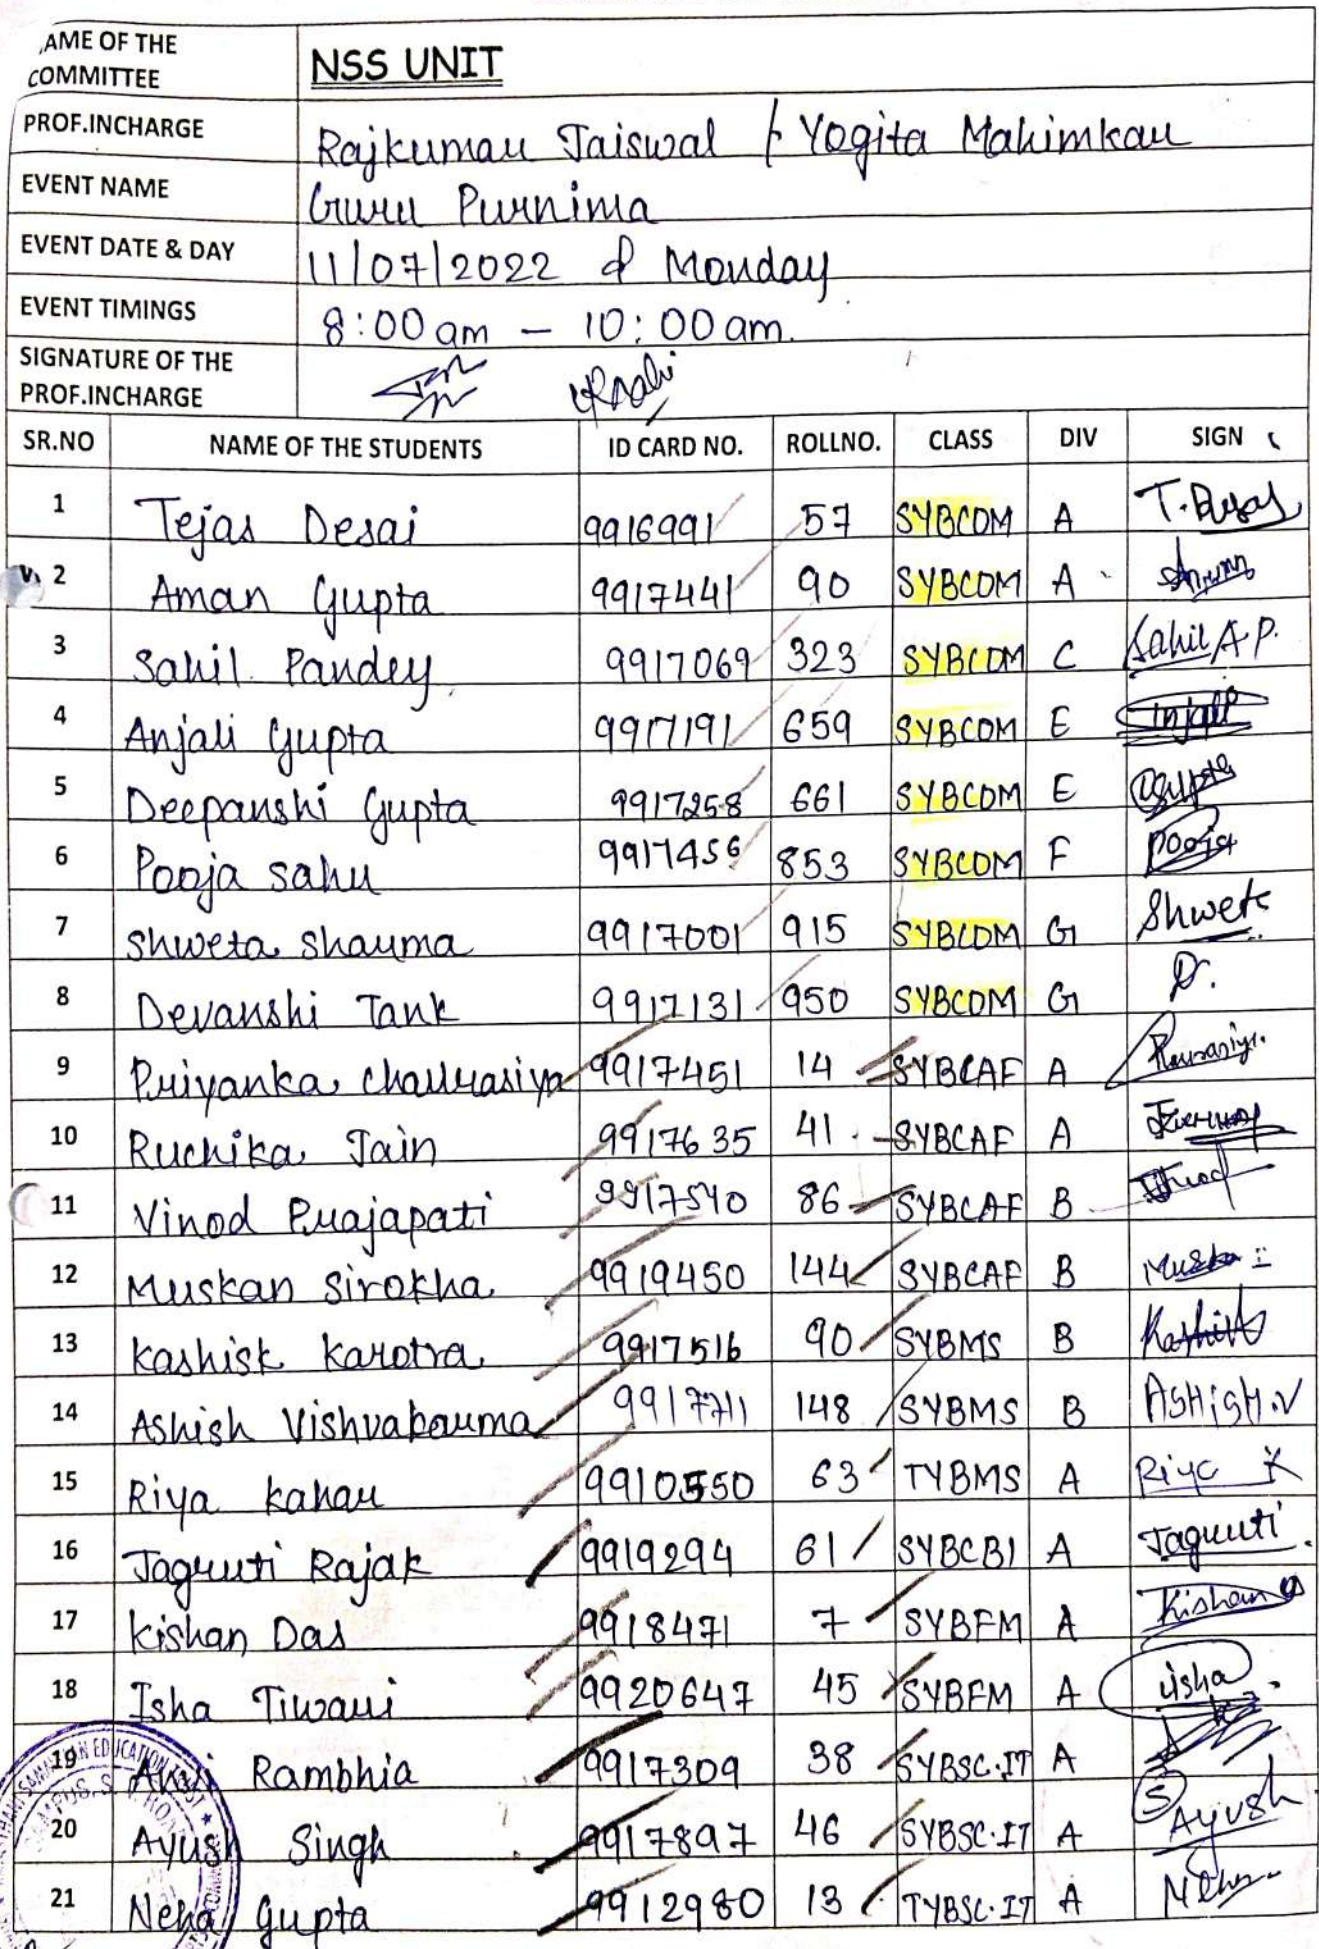 AME OF THE COMMITTEE NSS UNIT
PROF.INCHARGE Rajkumar Jaiswal / Yogita Mahimkar
EVENT NAME Guru Purnima
EVENT DATE & DAY 11/07/2022 & Monday
EVENT TIMINGS 8:00 am – 10:00 am.
SIGNATURE OF THE PROF.INCHARGE
SR.NO NAME OF THE STUDENTS ID CARD NO. ROLLNO. CLASS DIV SIGN
1 Tejas Desai 9916991 57 SYBCOM A T. Desai
2 Aman Gupta 9917441 90 SYBCOM A Aman
3 Sahil Pandey 9917069 323 SYBCOM C Sahil A.P.
4 Anjali Gupta 9917191 659 SYBCOM E Anjali
5 Deepanshi Gupta 9917258 661 SYBCOM E
6 Pooja sahu 9917456 853 SYBCOM F Pooja
7 Shweta Sharma 9917001 915 SYBCOM G Shweta
8 Devanshi Tank 9917131 950 SYBCOM G D.
9 Priyanka chaurasiya 9917451 14 SYBCAF A
10 Ruchika Jain 9917635 41 SYBCAF A
11 Vinod Prajapati 9917540 86 SYBCAF B
12 Muskan Sirokha 9919450 144 SYBCAF B
13 Kashisk Karotra 9917516 90 SYBMS B
14 Ashish Vishvakarma 9917711 148 SYBMS B ASHiSH.V
15 Riya Kahar 9910550 63 TYBMS A Riya K
16 Jagruti Rajak 9919294 61 SYBCBI A Jagruti
17 Kishan Das 9918471 7 SYBFM A Kishan
18 Isha Tiwari 9920647 45 SYBFM A isha
19 Rambhia 9917309 38 SYBSC.IT A
20 Ayush Singh 9917897 46 SYBSC.IT A Ayush
21 Neha Gupta 9912980 13 TYBSC.IT A Neha